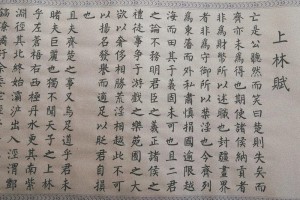 上林賦
亡是公听然而笑曰楚則失矣而
齊亦未為得也夫使諸侯納貢者
非為財幣所以述職也封疆畫界
者非為守御所以禁淫也今齊列
為東藩而外私肅慎捐國踰限越
海而田其于義固未可也且二君
之論不務明君臣之義正諸侯之
禮徒事爭于游戲之樂苑囿之大
欲以奢侈相勝荒淫相越此不可
以揚名發譽而適足以貶君自損
且夫齊楚之事又烏足道乎君未
睹夫巨麗也獨不聞天子之上林
乎左蒼梧右西極丹水更其南紫
淵徑其北終始灞滻出入涇渭酆